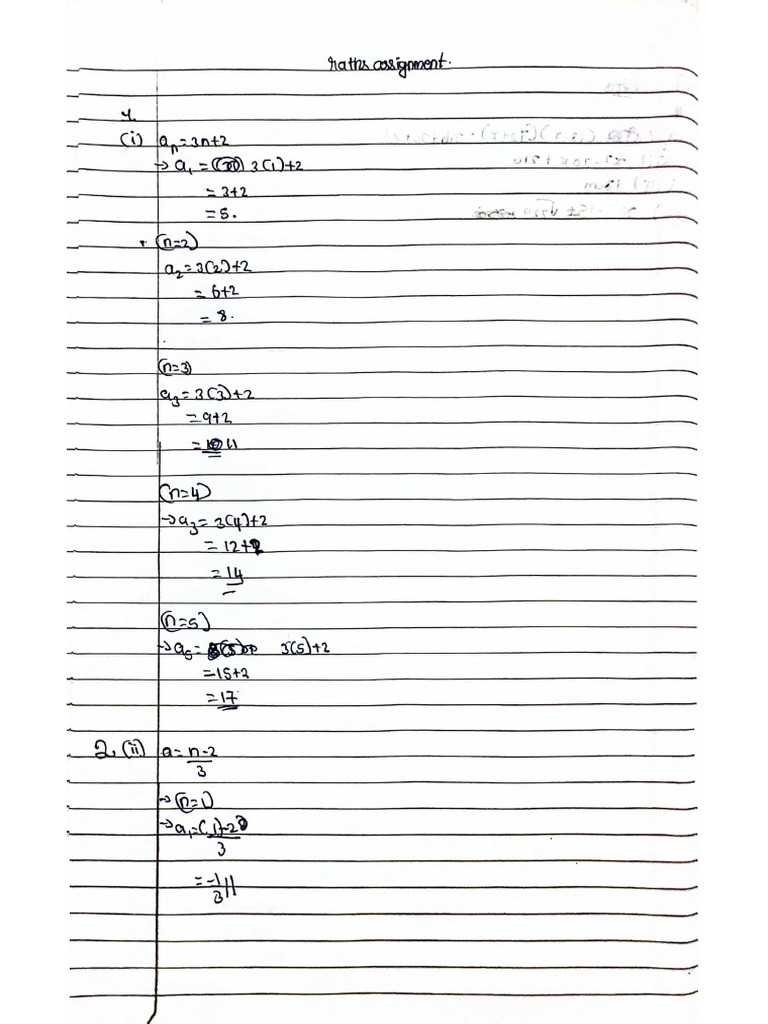 Maths assignment.
1.
(i) aₙ = 3n+2
→ a₁ = 3(1)+2
= 3+2
= 5.
(n=2)
a₂ = 3(2)+2
= 6+2
= 8.
(n=3)
a₃ = 3(3)+2
= 9+2
= 11
(n=4)
→ a₃ = 3(4)+2
= 12+2
= 14
(n=5)
→ a₅ = 3(5)+2
= 15+2
= 17
2. (ii) a = n-2/3
→ (n=1)
→ a₁ = (1)-2/3
= -1/3 //